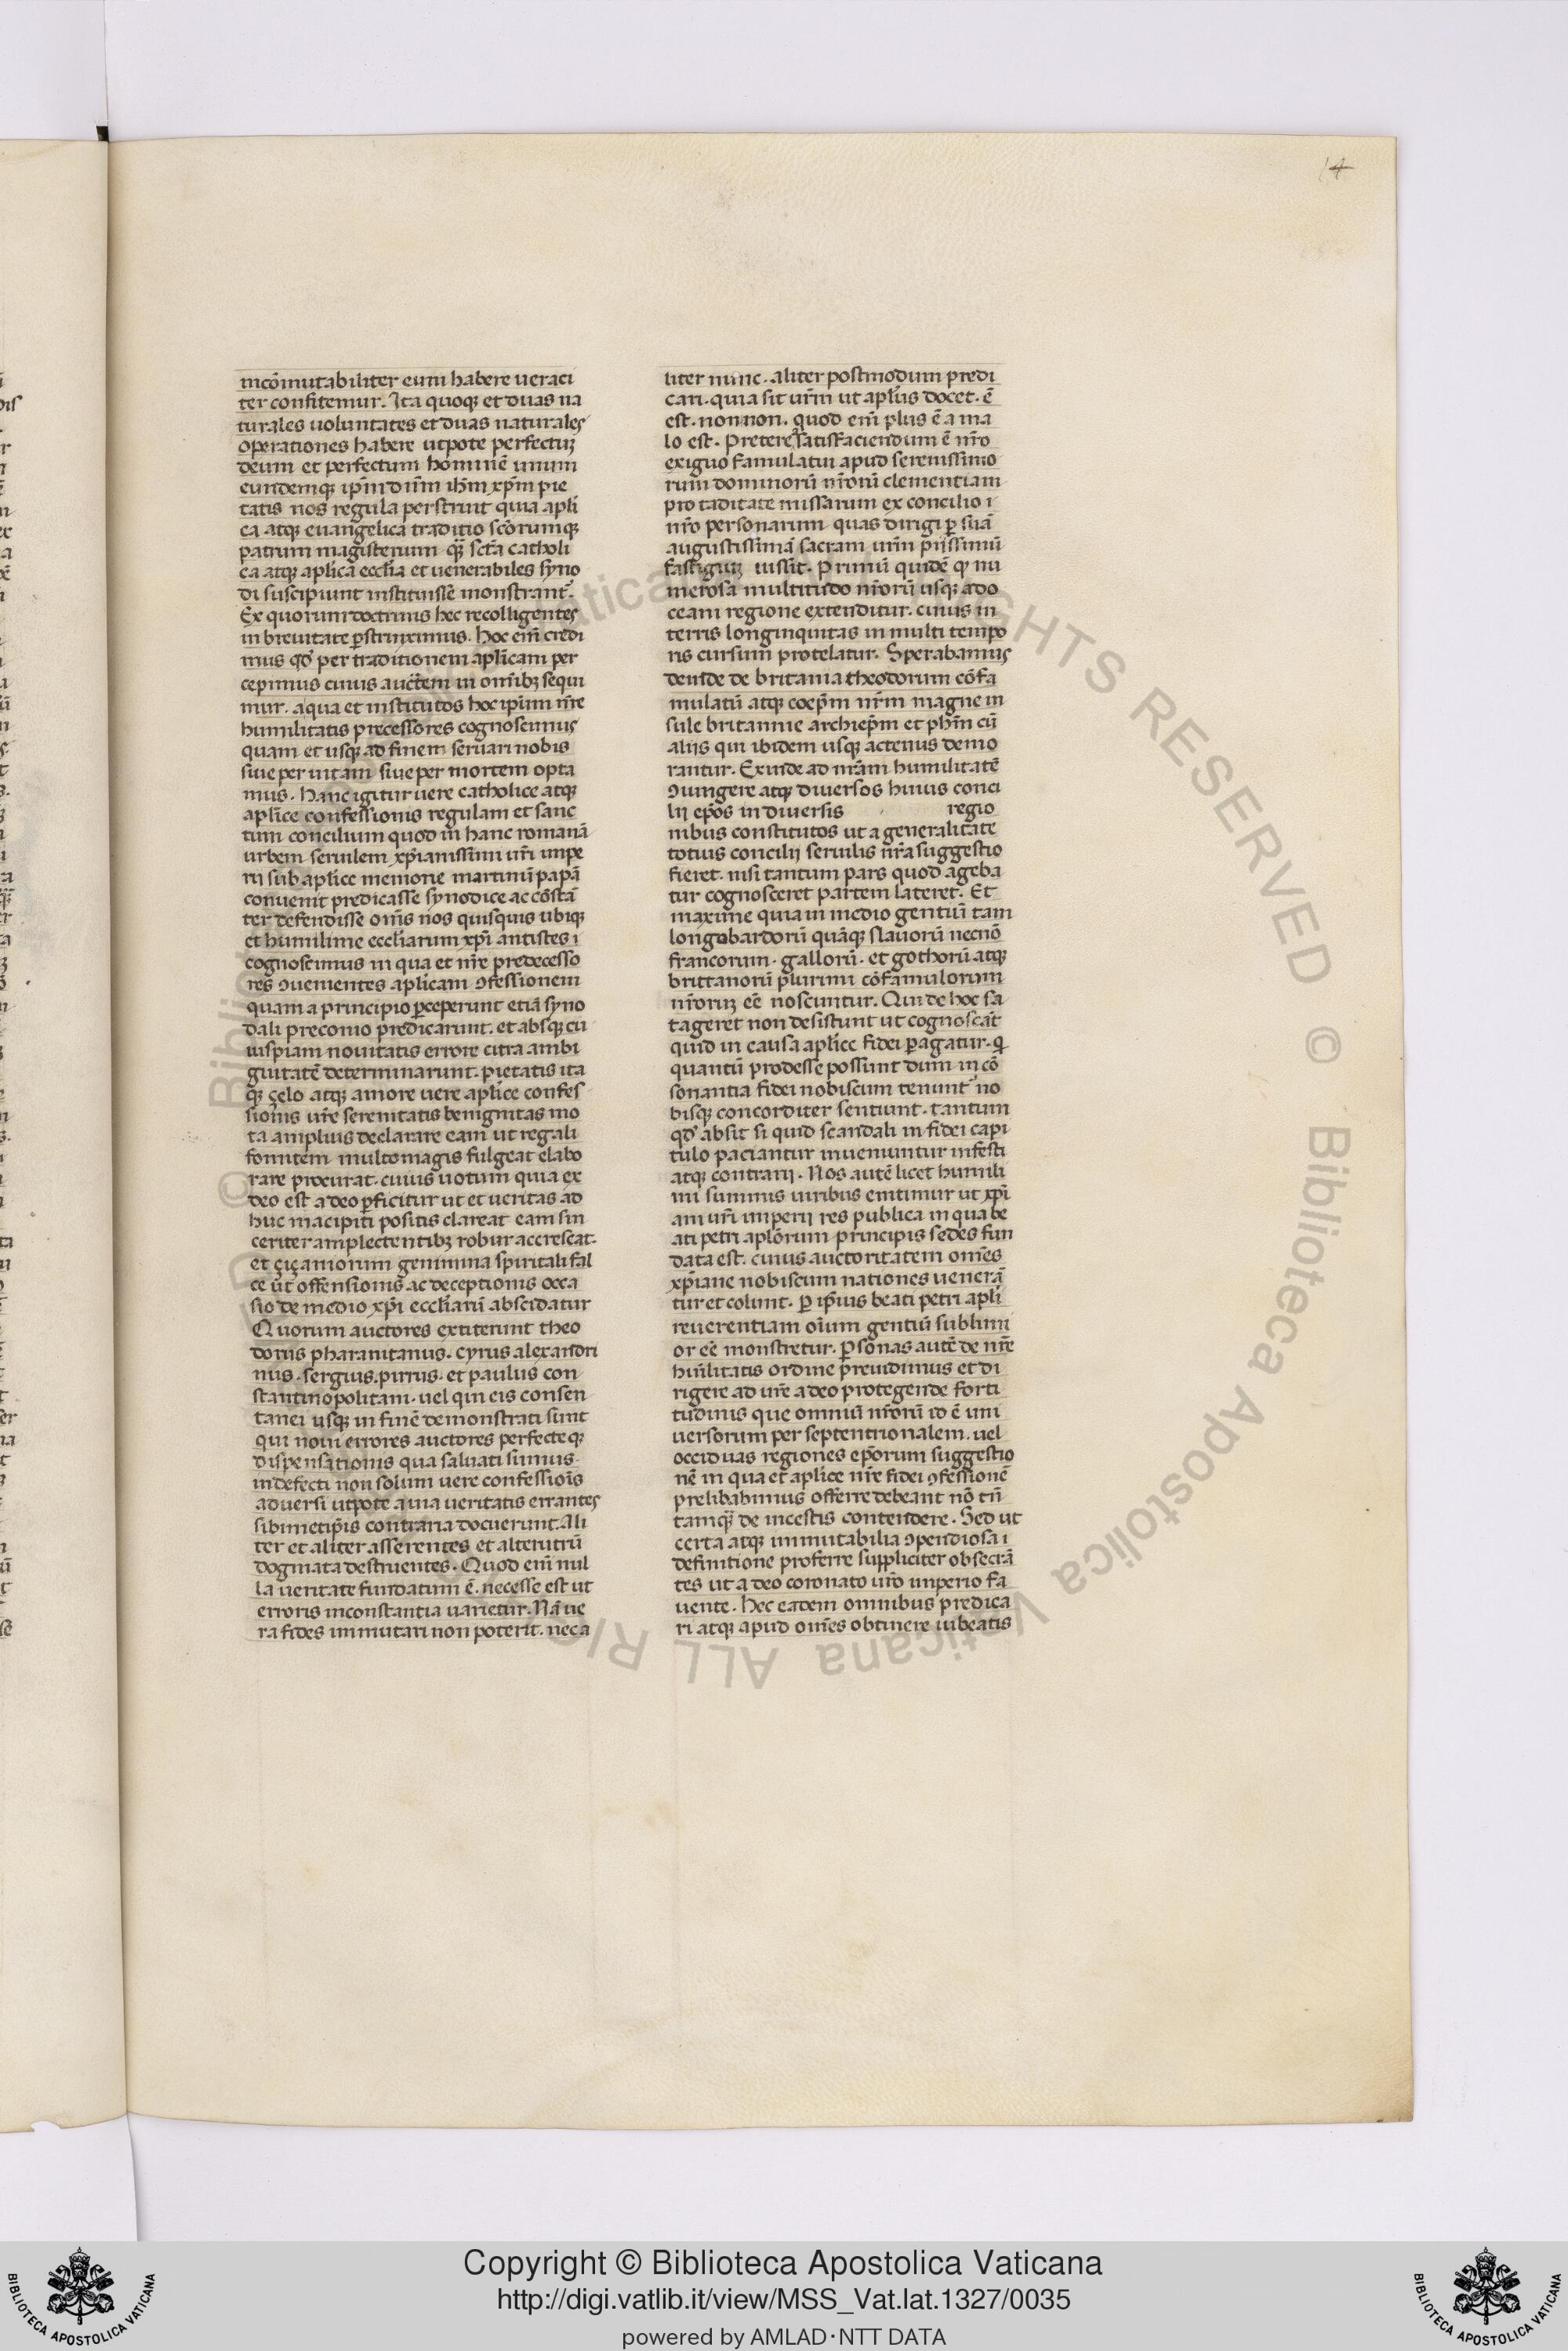 14
incōmutabiliter eum habere ueraci
ter confitemur. Ita quoqꝫ et duas na
turales uoluntates et duas naturales
operationes habere utpote perfectuꝫ
deum et perfectum hominē unum
eundemqꝫ ip̄m dn̄m ihm̄ xp̄m pie
tatis nos regula perstruit quia apl̄i
ca atqꝫ euangelica traditio sc̄orumqꝫ
patrum magisterium qꝫ̄ sct̄a catholi
ca atqꝫ aplicā eccl̄ia et uenerabiles syno
di suscipiunt instituisse monstrant᷑.
Ex quorum doctrinis hec recolligentes
in breuitate ꝑstrinximus. Hoc em̄ credi
mus qd̄ per traditionem apl̄icam per
cepimus cuius auct̄em in omībꝫ sequi
mur. aqua et institutos hoc ip̄um nr̄e
humilitatis precessores cognoscimus
quam et usqꝫ ad finem seruari nobis
siue per uitam siue per mortem opta
mus. Hanc igitur uere catholice atqꝫ
apl̄ice confessionis regulam et sanc
tum concilium quod in hanc romanā
urbem seruilem xp̄ianissimi ur̄i impe
rij sub apl̄ice memorie martinū papā
conuenit predicasse synodice ac cōstā
ter defendisse om̄s nos quisquis ubiqꝫ
et humilime eccl̄iarum xp̄i antistes i
cognoscimus in qua et nr̄e predecesso
res ꝯuenientes apl̄icam ꝯfessionem
quam a principio ꝑceperunt etiā syno
dali preconio predicarunt. et absqꝫ cu
iuspiam nouitatis errore citra ambi
guitatē determinarunt. pietatis ita
qꝫ̄ çelo atqꝫ amore uere apl̄ice confes
sionis ur̄e serenitatis benignitas mo
ta amplius declarare eam ut regali
fonitem multomagis fulgeat elabo
rare procurat. cuius uotum quia ex
deo est a deo ꝑficitur ut et ueritas ad
huc macipiti positis clareat eam sin
ceriter amplectentibꝫ robur accrescat.
et çiçaniorum genimina spiritali fal
ce ut offensionis ac deceptionis occa
sio de medio xp̄i eccl̄iarū abscidatur
Quorum auctores extiterunt theo
dorus pharanitanus. cyrus alexandri
nus. sergius. pirrus. et paulus con
stantinopolitani. uel qui eis consen
tanei usqꝫ in finē demonstrati sunt
qui noui errores auctores perfecteqꝫ
dispensationis qua saluati sumus.
indefecti non solum uere confessiōis
aduersi utpote a uia ueritatis errantes
sibimetip̄is contraria docuerunt. Ali
ter et aliter asserentes et alterutrū
dogmata destruentes. Quod em̄ nul
la ueritate fundatum ē. necesse est ut
erroris inconstantia uarietur. Nā ue
ra fides immutari non poterit. nec a
liter nunc. aliter postmodum predi
cari. quia sit ur̄m ut apl̄us docet. ē
est. non non. quod em̄ plus ē a ma
lo est. Preterea satisfaciendum ē nr̄o
exiguo famulatui apud serenissimo
rum dominorū nr̄orū clementiam
pro taditate missarum ex concilio i
nr̄o personarum quas dirigi ꝑ suā
augustissimā sacram ur̄m piissimū
fastiguꝫ iussit. Primū quidē qꝫ nu
merosa multitudo nr̄orū usqꝫ ad o
ceani regione extenditur. cuius in
terris longinquitas in multi tempo
ris cursum protelatur. Sperabamus
deinde de britania theodorum cōfa
mulatū atqꝫ coep̄m nr̄m magne in
sule britannie archiep̄m et ph̄m cū
aliis qui ibidem usqꝫ actenus demo
rantur. Exinde ad nr̄am humilitatē
ꝯiungere atqꝫ diuersos huius conci
lij ep̄os in diuersis regio
nibus constitutos ut a generalitate
totius concilij seruilis nr̄a suggestio
fieret. nisi tantum pars quod ageba
tur cognosceret partem lateret. Et
maxime quia in medio gentiū tam
longobardorū quāqꝫ slauorū necnō
francorum. gallorū. et gothorū atqꝫ
brittanorū plurimi cōfamulorum
nr̄orꝫ eē noscuntur. Qui de hoc sa
tageret non desistunt ut cognoscāt
quid in causa apl̄ice fidei ꝑagatur. q̄
quantū prodesse possunt dum in cō
sonantia fidei nobiscum tenunt᷑ no
bisqꝫ concorditer sentiunt. tantum
qd̄ absit si quid scandali in fidei capi
tulo paciantur inueniuntur infesti
atqꝫ contrarij. Nos autē licet humili
mi summis uiribus enitimur ut xp̄i
ani ur̄i imperij res publica in qua be
ati petri apl̄orum principis sedes fun
data est. cuius auctoritatem om̄es
xp̄iane nobiscum nationes uenerā
tur et colunt. ꝑ ip̄ius beati petri apl̄i
reuerentiam oīum gentiū sublimi
or eē monstretur. ꝑsonas autē de nr̄e
hūilitatis ordine preuidimus et di
rigere ad ur̄e a deo protegende forti
tudinis que omniū nr̄orū id ē uni
uersorum per septentrionalem. uel
occiduas regiones ep̄orum suggestio
nē in qua et apl̄ice nr̄e fidei ꝯfessionē
prelibabimus offerre debeant nō tn̄
tamqꝫ̄ de incestis contendere. Sed ut
certa atqꝫ immutabilia ꝯpendiosa i
definitione proferre suppliciter obsecrā
tes ut a deo coronato ur̄o imperio fa
uente. Hec eadem omnibus predica
ri atqꝫ apud om̄es obtinere iubeatis
Copyright © Biblioteca Apostolica Vaticana
http://digi.vatlib.it/view/MSS_Vat.lat.1327/0035
powered by AMLAD·NTT DATA